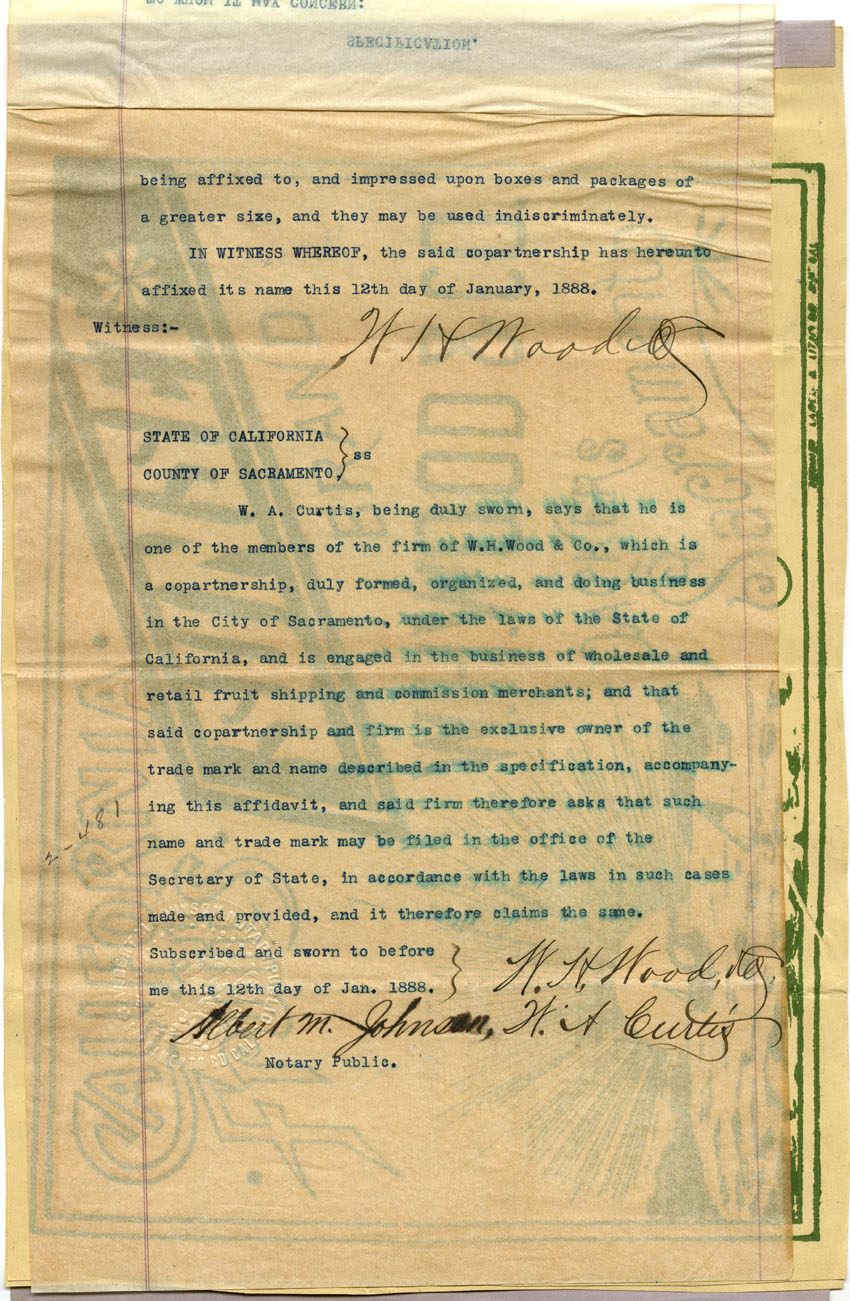 TO WHOM IT MAY CONCERN:
SPECIFICATION.
being affixed to, and impressed upon boxes and packages of
a greater size, and they may be used indiscriminately.
IN WITNESS WHEREOF, the said copartnership has hereunto
affixed its name this 12th day of January, 1888.
Witness:-
W H Wood & Co
STATE OF CALIFORNIA
COUNTY OF SACRAMENTO, } ss
W. A. Curtis, being duly sworn, says that he is
one of the members of the firm of W.H.Wood & Co., which is
a copartnership, duly formed, organized, and doing business
in the City of Sacramento, under the laws of the State of
California, and is engaged in the business of wholesale and
retail fruit shipping and commission merchants; and that
said copartnership and firm is the exclusive owner of the
trade mark and name described in the specification, accompany-
ing this affidavit, and said firm therefore asks that such
name and trade mark may be filed in the office of the
Secretary of State, in accordance with the laws in such cases
made and provided, and it therefore claims the same.
Subscribed and sworn to before
me this 12th day of Jan. 1888. }
W. H. Wood, & Co.
Albert M. Johnson, W. A Curtis
Notary Public.
2-481
CALIFORNIA